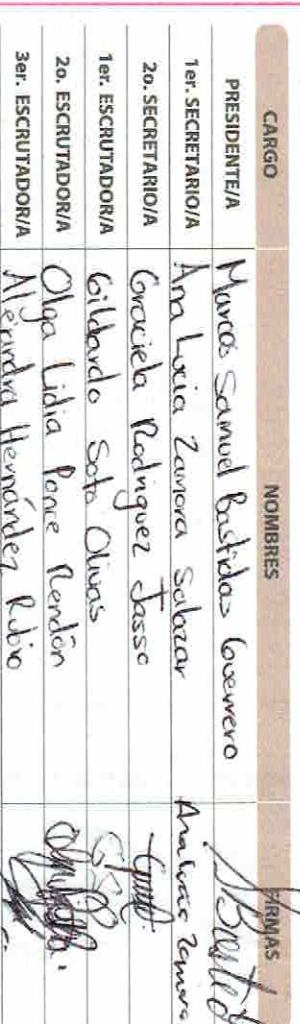 CARGO NOMBRES FIRMAS
PRESIDENTE/A Marcos Samuel Bastidas Guerrero
1er. SECRETARIO/A Ana Lucia Zamora Salazar Ana Lucia Zamora
2o. SECRETARIO/A Graciela Rodriguez Jasso
1er. ESCRUTADOR/A Gildardo Soto Olivas
2o. ESCRUTADOR/A Olga Lidia Ponce Rendón
3er. ESCRUTADOR/A Alejandra Hernández Rubio